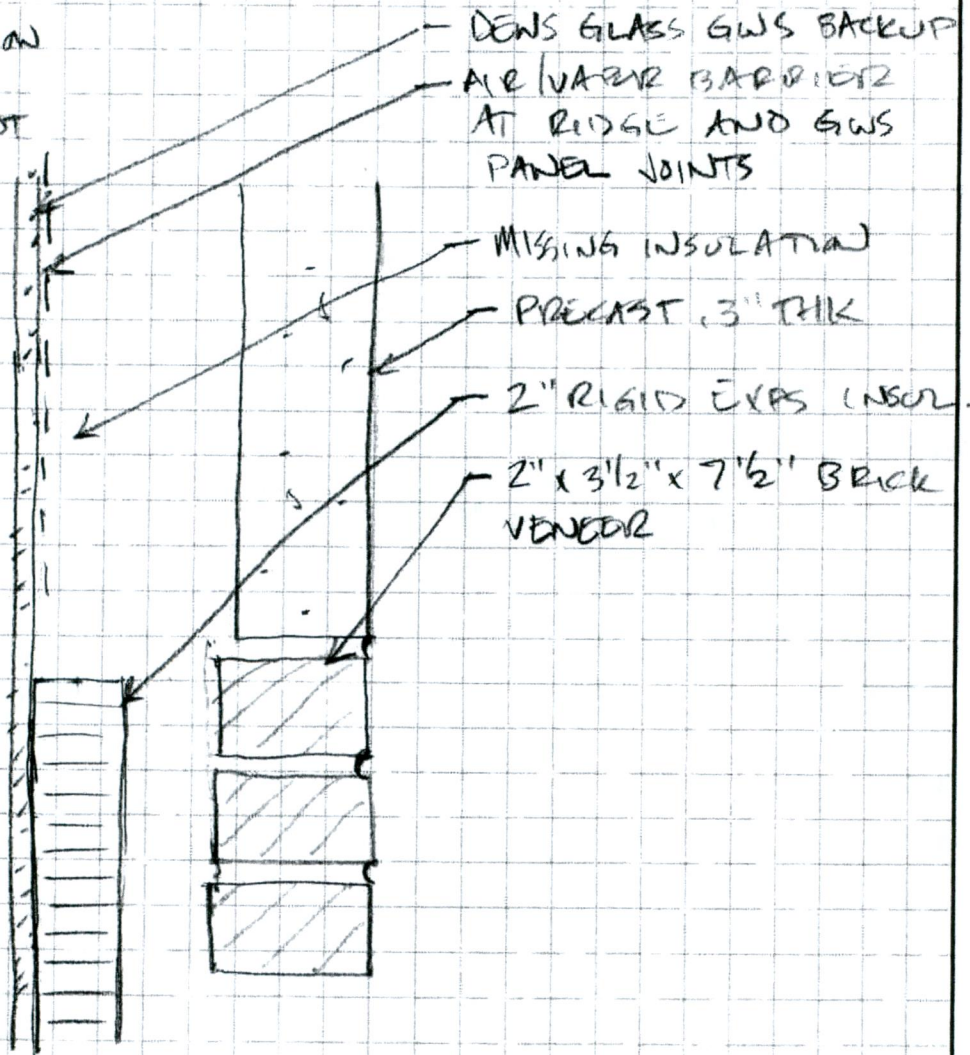 ON
ST
DENS GLASS GWS BACKUP
AIR/VAPOR BARRIER
AT RIDGE AND GWS
PANEL JOINTS
MISSING INSULATION
PRECAST, 3" THK
2" RIGID EXPS INSUL.
2" x 3 1/2" x 7 1/2" BRICK
VENEER